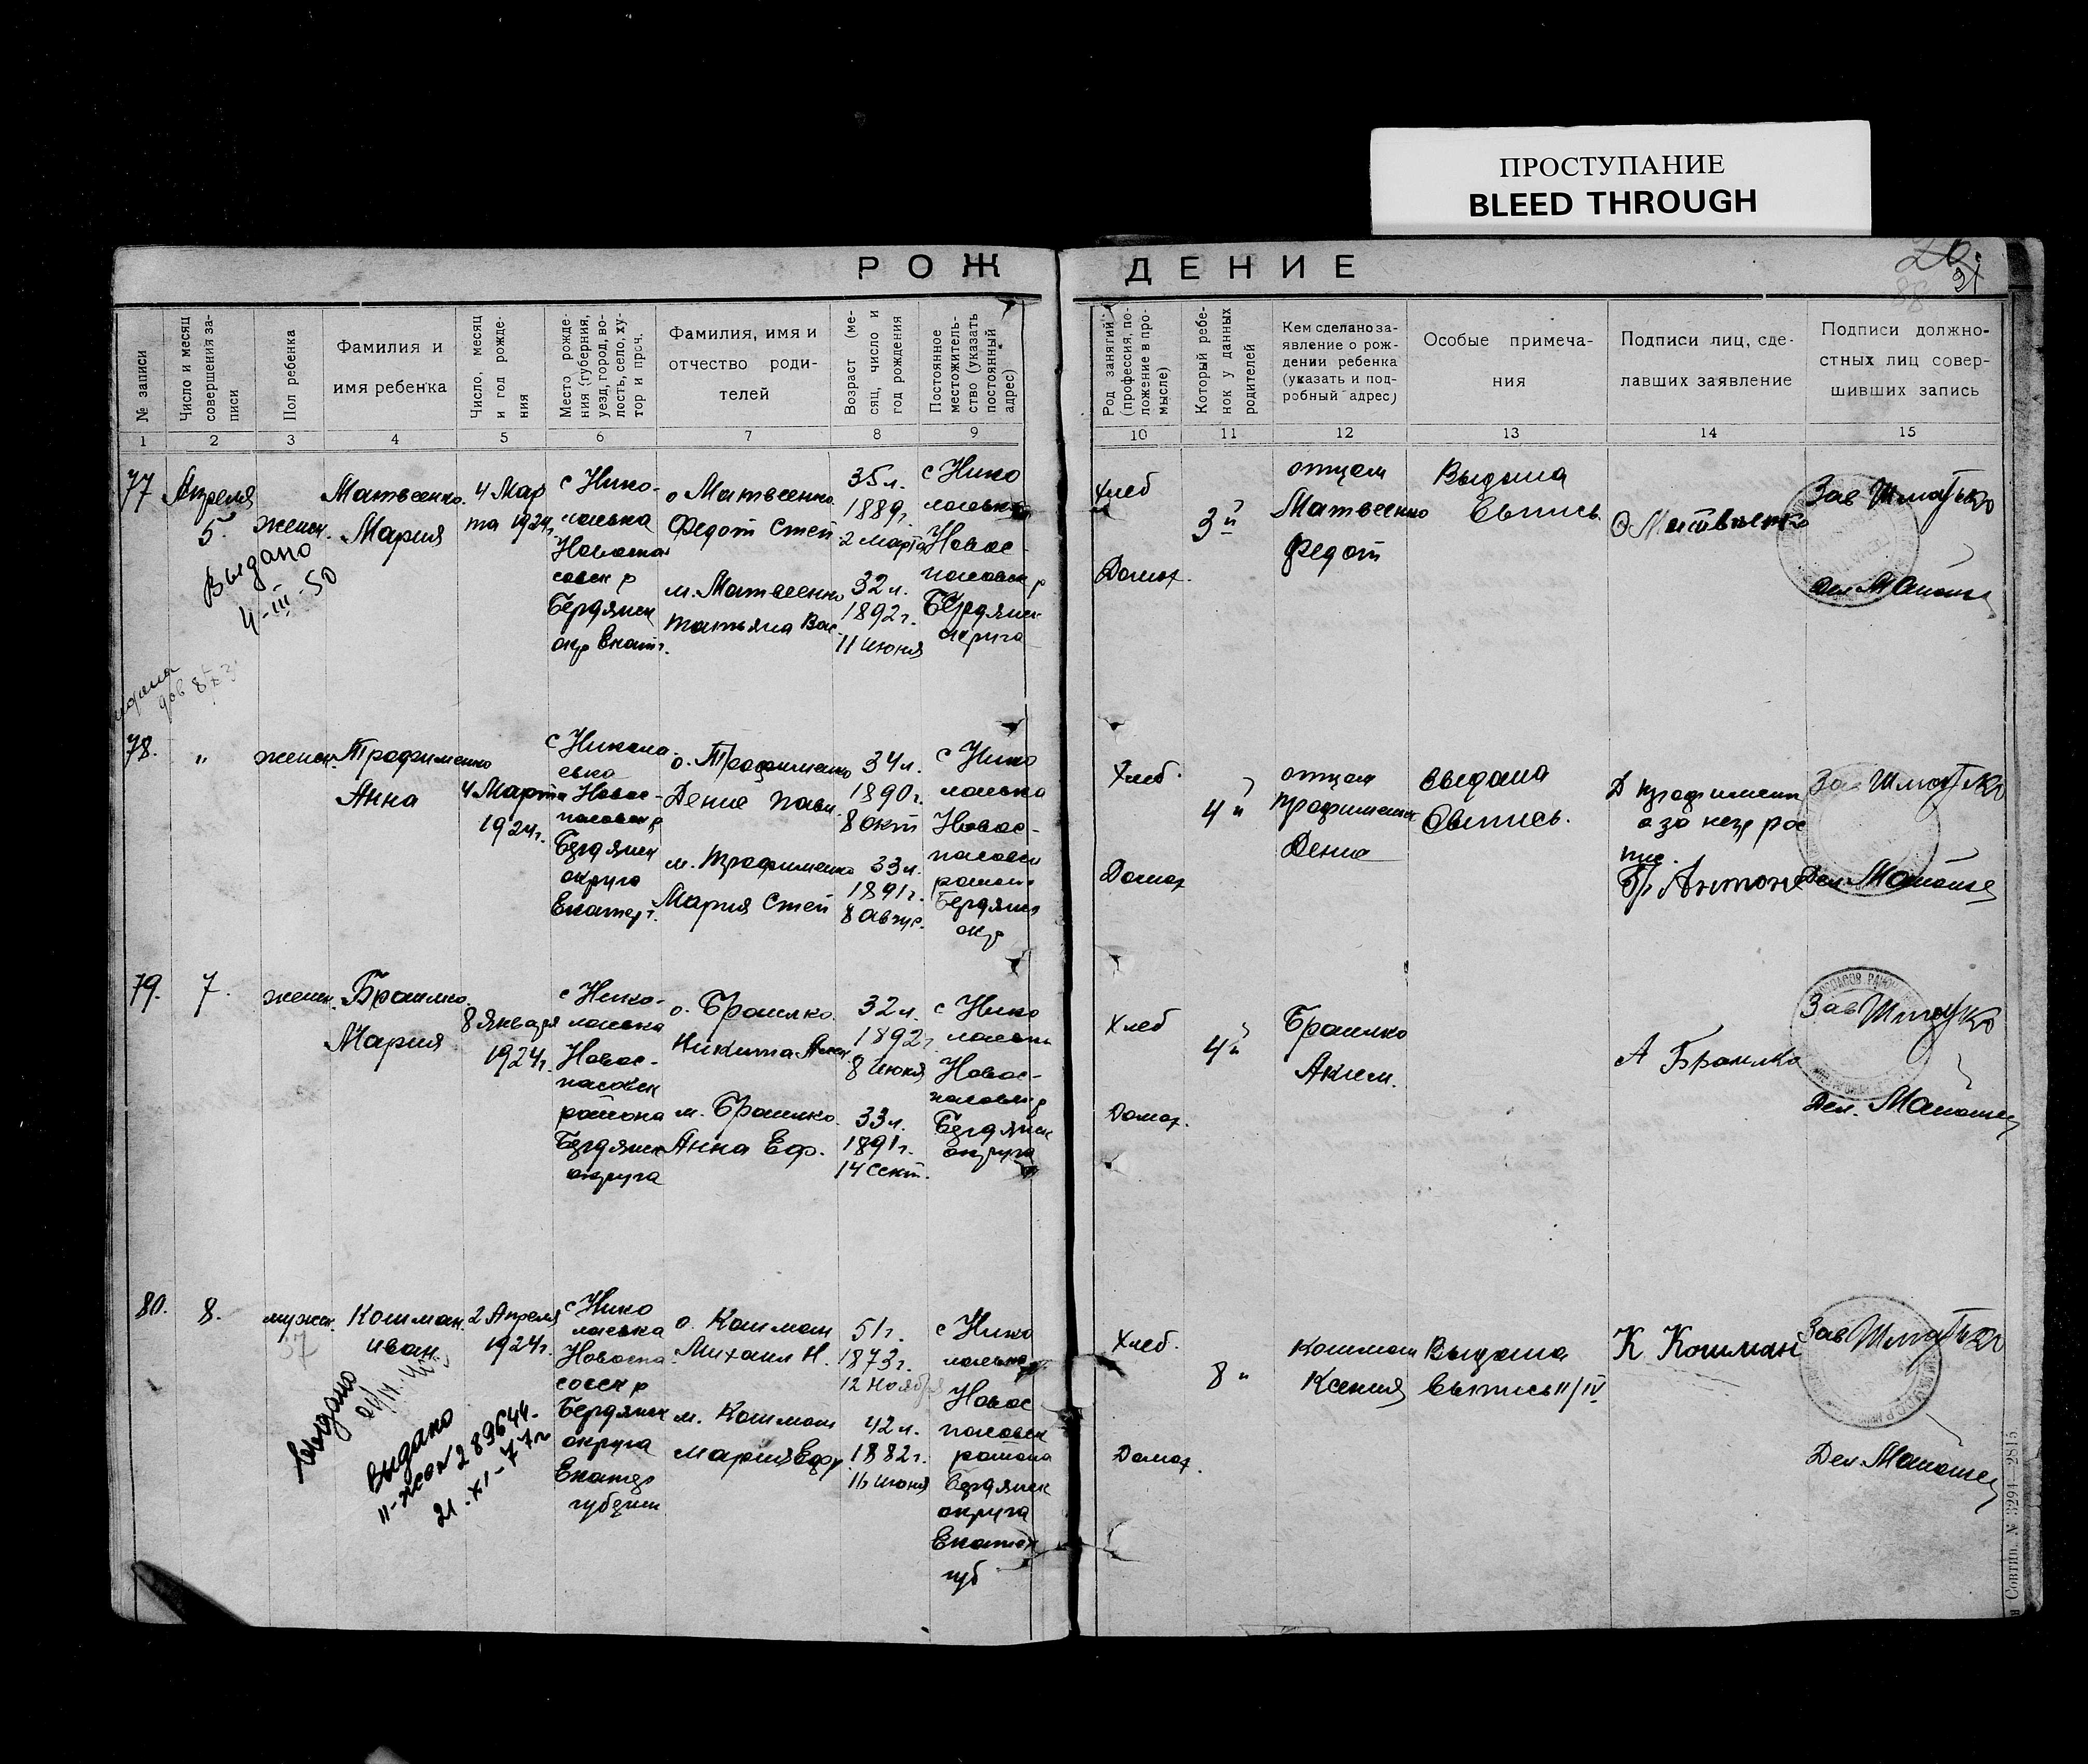 ПРОСТУПАНИЕ
BLEED THROUGH
РОЖДЕНИЕ
26.
31
№ записи
Число и месяц совершения записи
Пол ребенка
Фамилия и имя ребенка
Число, месяц и год рождения
Место рождения (губерния, уезд, город, волость, село, хутор и проч.
Фамилия, имя и отчество родителей
Возраст (месяц, число и год рождения
Постоянное местожительство (указать постоянный адрес)
Род занятий (профессия, положение в промысле)
Который ребенок у данных родителей
Кем сделано заявление о рождении ребенка (указать и подробный адрес)
Особые примечания
Подписи лиц, сделавших заявление
Подписи должностных лиц совершивших запись
1 2 3 4 5 6 7 8 9 10 11 12 13 14 15
77
Апреля
5
женск.
Матвеенко
Мария
4 Мар
та 1924г.
с Нико-
лаевка
Бердянск
окр Екат.
о Матвеенко
Федот Степ
м. Матвеенко
Татьяна Вас.
35 л.
1889г.
2 марта
32 л.
1892 г.
11 июня
с Нико
лаевка
Новос-
пасовск р
Бердянск
округа
Хлеб
Домох.
3й
отцем
Матвеенко
Федот
Выдана
Выпись
О Матвиенко
Зав Шматько
Дел Манойле
Выдано
4-III-50
78.
"
женск.
Трофименко
Анна
4 Марта
1924г.
с Никола
евка
Новос-
пасовск р
Бердянск
округа
Екатер г.
о. Трофименко
Денис Павл.
м. Трофименко
Мария Степ
34 л.
1890г.
8 окт
33 л.
1891г.
8 авгус.
с Нико
лаевка
Новос-
пасовск
района
Бердянск
окр
Хлеб.
Домох
4й
отцем
Трофименко
Денис
выдана
Выпись.
Д Трофименк
а за негр рос
пис.
Бр Антоне
Зав Шматько
Дел Манойле
79.
7.
женск.
Браилко
Мария
8 Января
1924г.
с Нико-
лаевка
Новос-
пасовск
района
Бердянск
округа
о. Браилко
Никита
м. Браилко
Анна Еф.
32 л.
1892 г
8 июня
33 л.
1891г.
14 сент.
с Нико
лаевка
Новос-
пасовск р
Бердянск
округа
Хлеб
Домох.
4й
Браилко
Аким.
А Браилко
Зав Шматько
Дел. Манойле
80.
8.
мужск.
37
Кошман.
Иван.
2 Апреля
1924г.
с Нико
лаевка
Новоспа
совск р
Бердянск
округа
Екатер
губерни
о. Кошман
Михаил Н.
м. Кошман
Мария Ефр
51 г.
1873г.
12 ноября
42 л.
1882г.
16 июня
с Нико
лаевка
Новос
пасовск
района
Бердянск
округа
Екатер
губ
Хлеб.
Домох.
8"
Кошман
Ксения
Выдана
Выпись 11/IV
К Кошман
Зав Шматько
Дел Манойле
Выдано
Выдано
II-ЖС №283644.
21.XI-77г